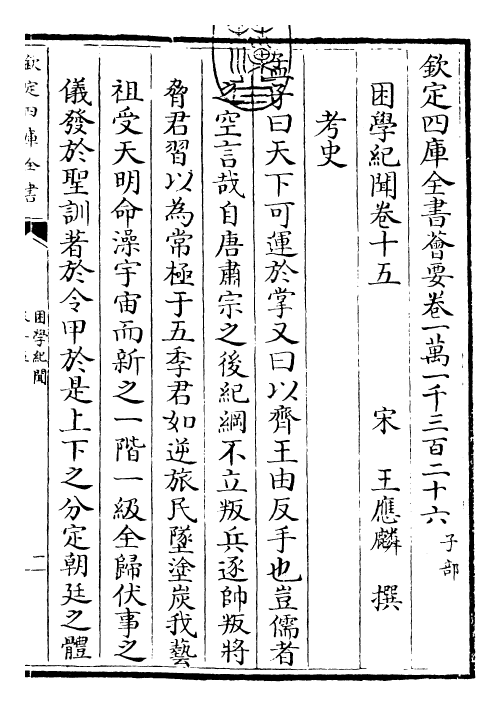 欽定四庫全書薈要卷一萬一千三百二十六 子部
困學紀聞卷十五　宋　王應麟　撰
考史
孟子曰天下可運於掌又曰以齊王由反手也豈儒者
之空言哉自唐肅宗之後紀綱不立叛兵逐帥叛將
脅君習以為常極于五季君如逆旅民墜塗炭我藝
祖受天明命澡宇宙而新之一階一級全歸伏事之
儀發於聖訓著於令甲於是上下之分定朝廷之體
欽定四庫全書
困學紀聞